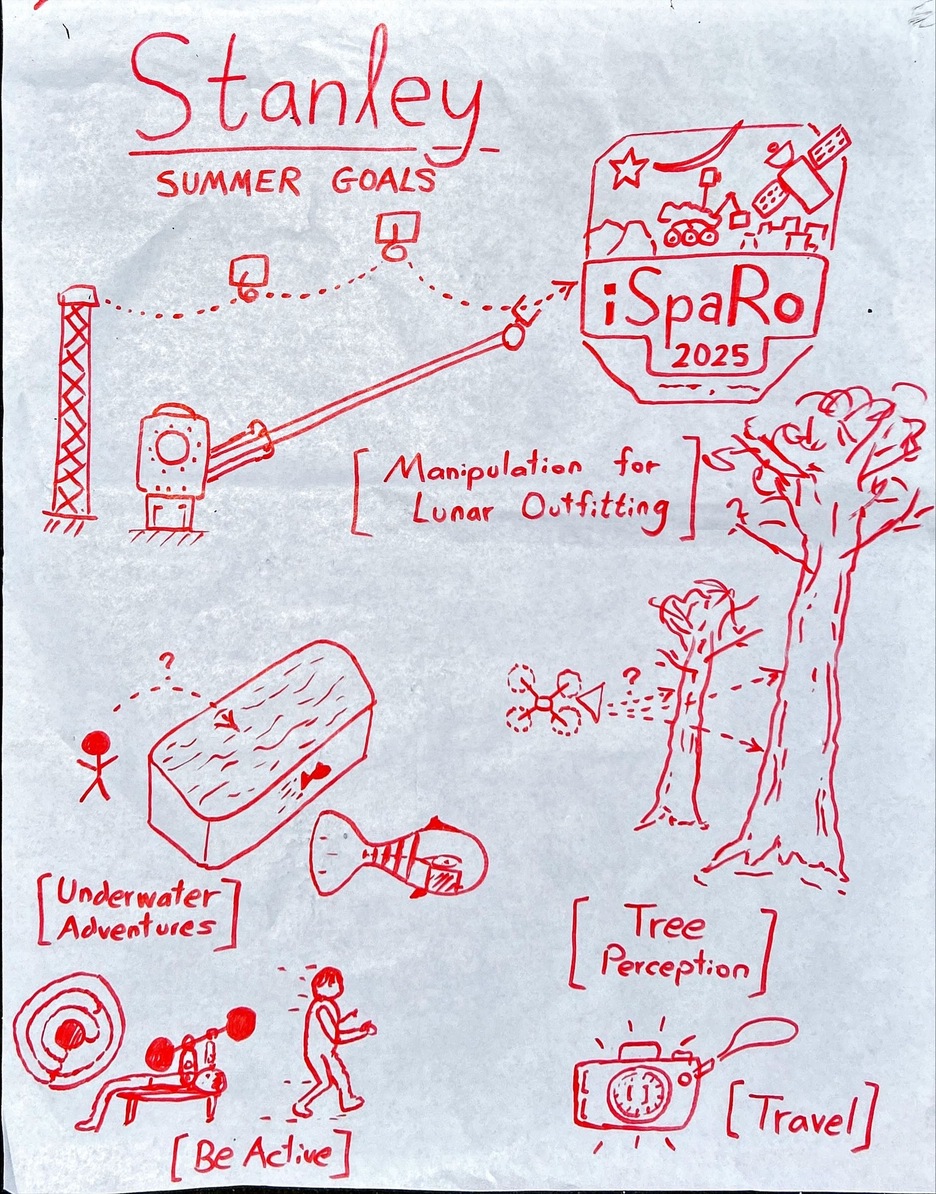 Stanley
SUMMER GOALS
iSpaRo
2025
[Manipulation for
Lunar Outfitting]
?
?
[Underwater
Adventures]
[Tree
Perception]
[Be Active]
[Travel]